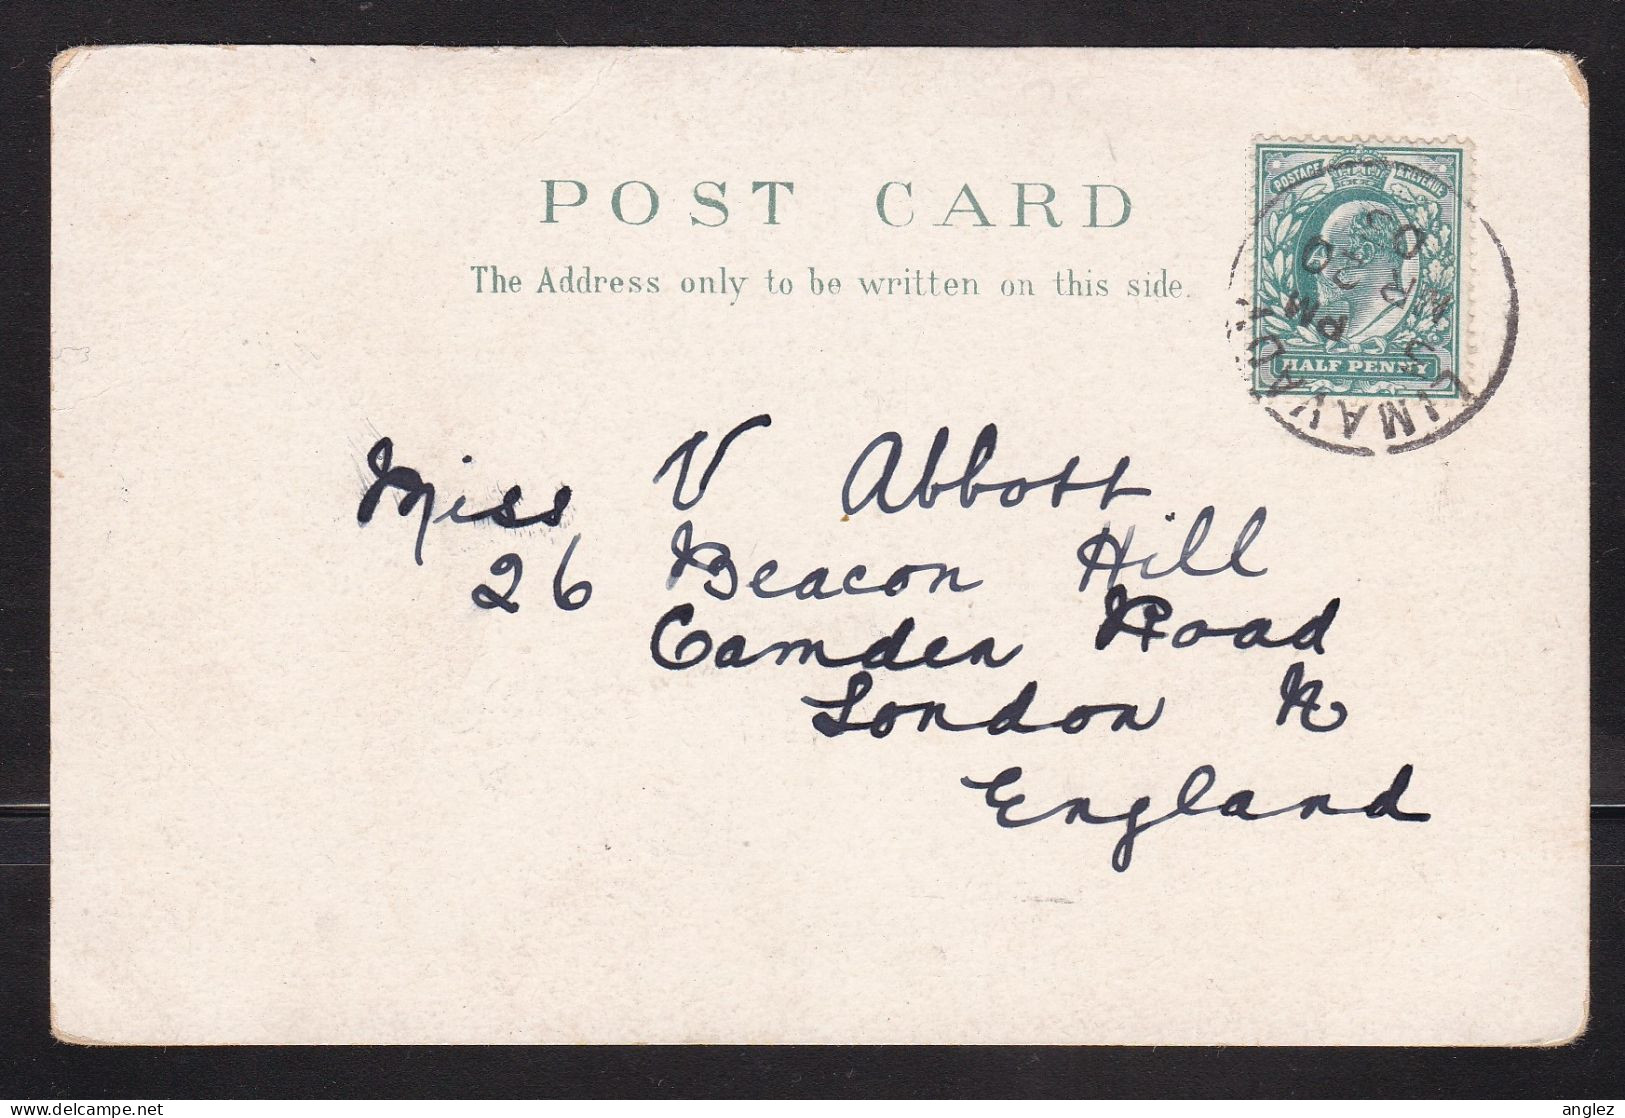 POST CARD
The Address only to be written on this side.
POSTAGE REVENUE
HALF PENNY
LIMAVADY
PM
MR
03
Miss V Abbott
26 Beacon Hill
Camden Road
London N
England
delcampe.net
anglez